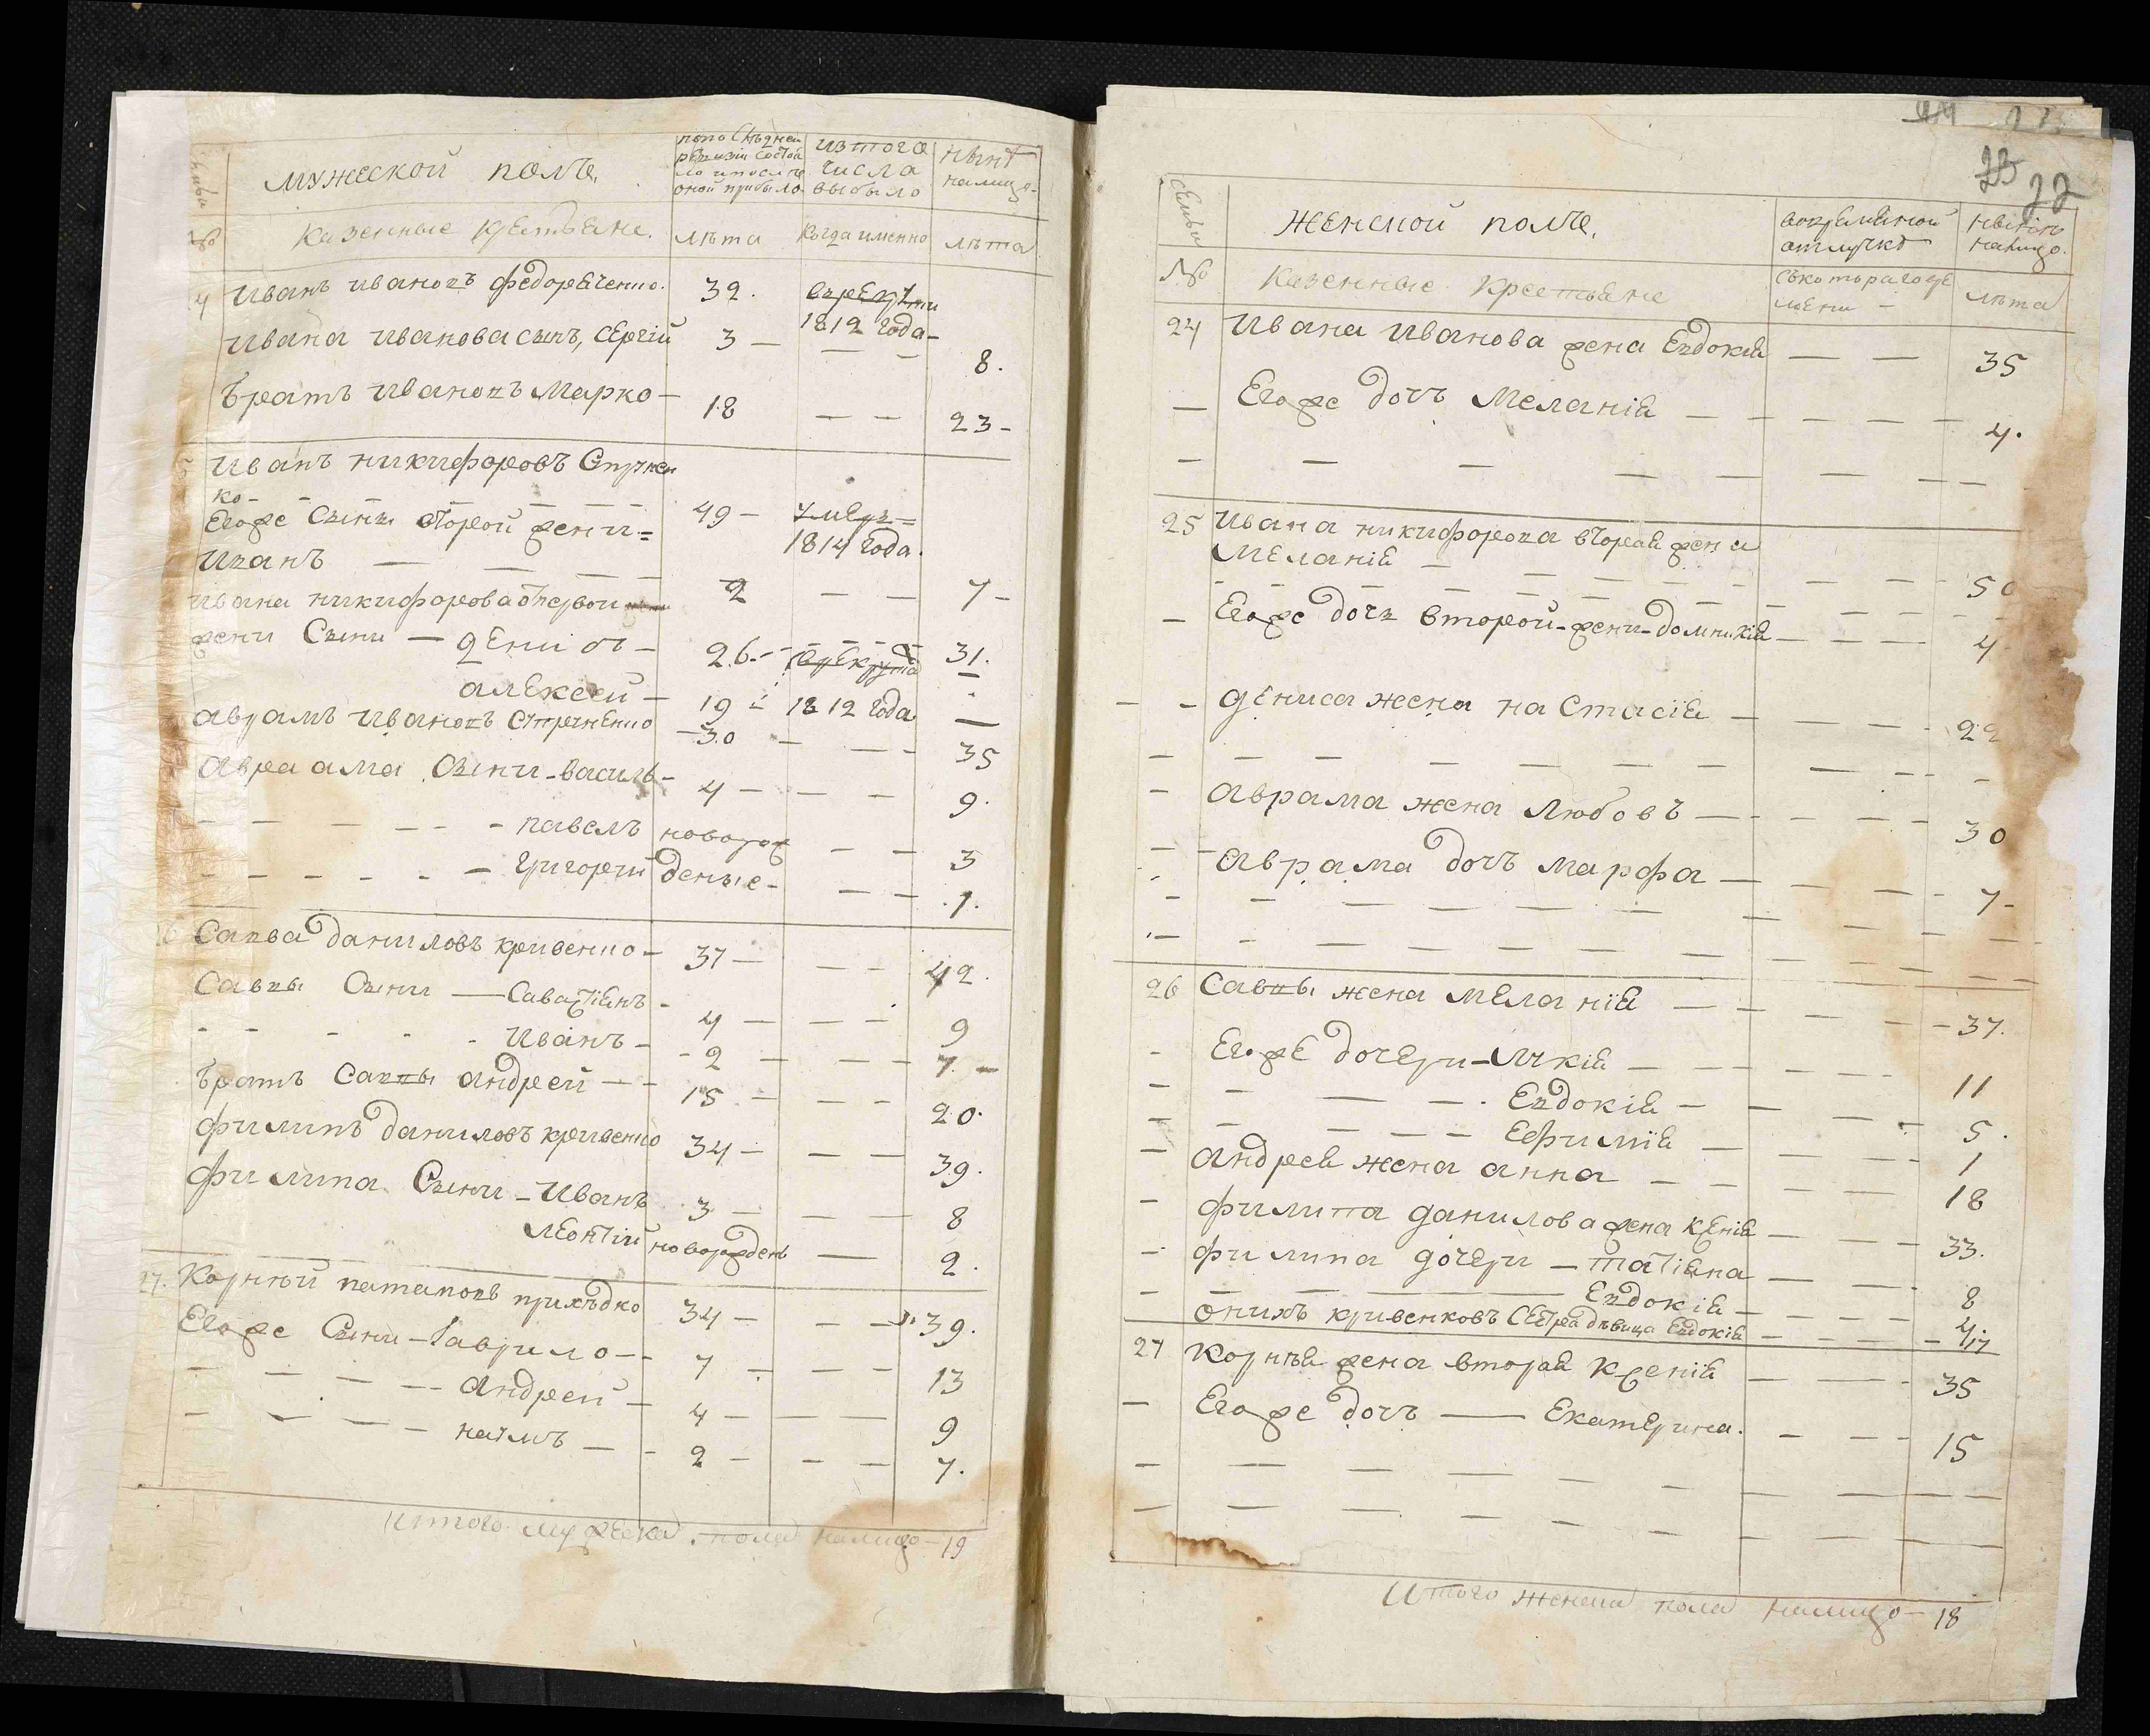 мужеской полъ.
попоследней ревизіи состояло ипосле оной прибыло
изтого числа выбыло
нынѣ налицо.
№
казенные крестьяне.
лѣта
когда именно
лѣта
4 Иванъ Ивановъ Федорѣченко.
32.
врекруты 1812 года
Ивана Иванова сынъ, Сергій
3 — — — 8.
Братъ Ивановъ Марко —
18 — — 23 -
Иванъ никифоровъ Стрѣчен
ко -
49 - умеръ 1814 года.
Егоже сынъ второй жени =
Иванъ — — — —
2 — — 7 -
Ивана никифорова отпервой
жени сыни — Денисъ -
26. - — 31.
алексей -
19 - врекруты 1812 года —
аврамъ Ивановъ Стреченко
30 - — - 35
Авраама сыни - василь -
4 — — — 9.
- павелъ новорож — — 3
- Григорій деные - — - .1.
Савва даниловъ кривенко -
37 — — - 42.
Саввы сыни — Савастіянъ -
4 — — - 9
Иванъ -
- 2 — — - 7. -
братъ Саввы андрей — -
15 - — - 20.
филипъ даниловъ кривенко
34 - — — 39.
филипа сыни - Иванъ
3 — — — 8
леонтій новорожденъ — 2.
27. Корнѣй патаповъ прихѣдко
34 — — — 39.
Егоже сыни - Гаврило - -
7 — — — 13
- — — — андрей -
4 - — — 9
- — — — наумъ — -
2 - — — 7.
Итого мужеска пола налицо - 19
23 22
семьи
женской полъ.
вовременной отлучкѣ
нынѣ налицо.
№
казенные крестьяне
съкоторагоже мени -
лѣта
24 Ивана Иванова жена Евдокія — — 35
— Егоже дочъ Меланія — — — — — 4.
25 Ивана никифорова вторая жена
Меланія — — — — — 50
- Егоже дочъ второй - жени - домникія — — — 4
- Дениса жена настасія — — — - 22
- аврама жена любовъ — — - — - 30
- аврама дочъ марфа — — — — - 7 -
26 Саввы жена меланія — — — — - 37.
- Егоже дочери - Лукія — — — 11
- — — — . Евдокія — — — 5.
- — — — — Ефимія — — 1
— андрея жена анна — — — — 18
- филипа данилова жена Ксенія — — — 33.
- филипа дочери — татіяна — — . 8
- — — — Евдокія — — — 4
онихъ кривенковъ сестра дѣвица Евдокія — — - 17
27 Корнѣя жена вторая Ксенія — — . 35
— Егоже дочъ — Екатерина. - — - 15
Итого женска пола налицо — 18